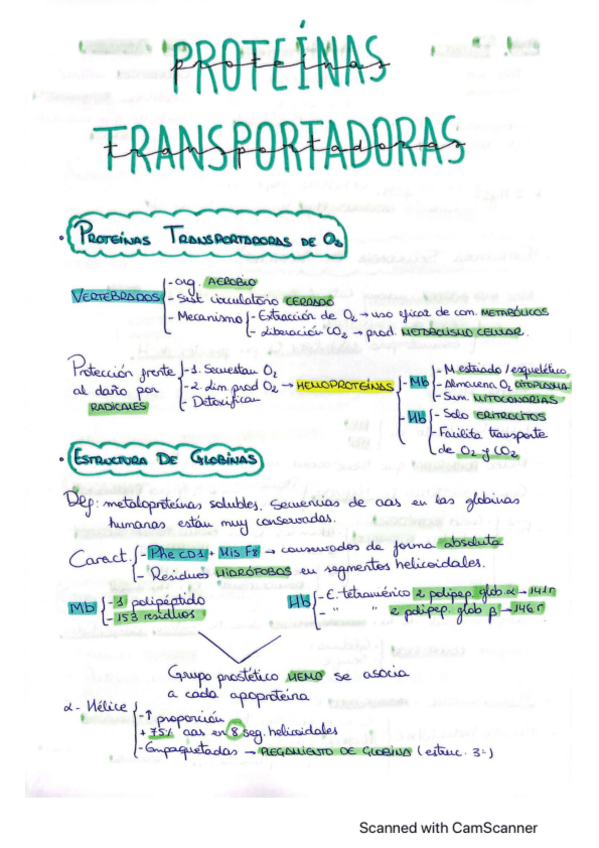 PROTEÍNAS
proteínas
TRANSPORTADORAS
transportadoras
· PROTEÍNAS TRANSPORTADORAS DE O₂
VERTEBRADOS
- org. AEROBIO
- Sist circulatorio CERRADO
- Mecanismo
- Extracción de O₂ → uso eficaz de com. METABÓLICOS
- Liberación CO₂ → prod. METABOLISMO CELULAR.
Protección frente al daño por RADICALES
- 1. Secuestan O₂
- 2. lim. prod O₂ → HEMOPROTEÍNAS
- Detoxifican
- Mb
- M. estriado / esquelético
- Almacena O₂ CITOPLASMA
- Sum. MITOCONDRIAS
- Hb
- Solo ERITROCITOS
- Facilita transporte
de O₂ y CO₂
· ESTRUCTURA DE GLOBINAS
Def: metaloproteínas solubles. Secuencias de aas en las globinas
humanas están muy conservadas.
Caract.
- Phe CD1 + His F8 → conservados de forma absoluta
- Residuos HIDRÓFOBOS en segmentos helicoidales.
Mb
- 1 polipéptido
- 153 residuos
Hb
- E. tetramérico 2 polipep. glob. α → 141 r
- " " 2 polipep. glob β → 146 r
Grupo prostético HEMO se asocia
a cada apoproteína
α - Hélice
- ↑ proporción
+ 75% aas en 8 seg. helicoidales
- Empaquetadas → PLEGAMIENTO DE GLOBINA (estruc. 3ª)
Scanned with CamScanner